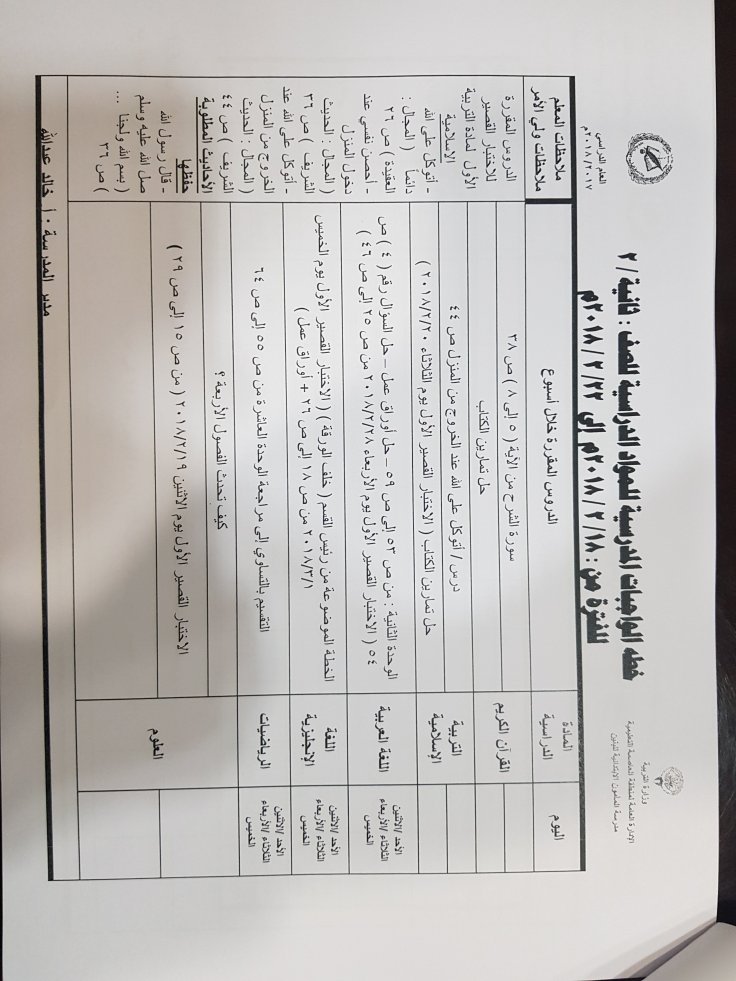 وزارة التربية
الإدارة العامة لمنطقة العاصمة التعليمية
مدرسة المأمون الابتدائية للبنين
العام الدراسي
٢٠١٨/٢٠١٧م
خطة الواجبات المدرسية للمواد الدراسية للصف : ثانية / ٢
للفترة من : ٢٠١٨ / ٢ / ١٨م إلى ٢٠١٨ / ٢ / ٢٢م
اليوم
المادة الدراسية
الدروس المقررة خلال أسبوع
ملاحظات المعلم
ملاحظات ولي الأمر
القرآن الكريم
سورة الشرح من الآية ( ٥ إلى ٨ ) ص ٣٨
حل تمارين الكتاب
التربية الإسلامية
درس / أتوكل على الله عند الخروج من المنزل ص ٤٤
حل تمارين الكتاب ( الاختبار القصير الأول يوم الثلاثاء ٢٠١٨/٢/٢٠ )
الأحد /الاثنين
الثلاثاء /الأربعاء
الخميس
اللغة العربية
الوحدة الثانية : من ص ٥٣ إلى ص ٥٩ – حل أوراق عمل – حل السؤال رقم ( ٤ ) ص
٥٤ ( الاختبار القصير الأول يوم الأربعاء ٢٠١٨/٢/٢٨ من ص ٢٥ إلى ص ٤٦ )
الأحد /الاثنين
الثلاثاء /الأربعاء
الخميس
اللغة الإنجليزية
الخطة الموضوعة من رئيس القسم ( خلف الورقة ) ( الاختبار القصير الأول يوم الخميس
٢٠١٨/٣/١ من ص ١٨ إلى ص ٢٦ + أوراق عمل )
الأحد /الاثنين
الثلاثاء /الأربعاء
الخميس
الرياضيات
التقسيم بالتساوي إلى مراجعة الوحدة العاشرة من ص ٥٥ إلى ص ٦٤
العلوم
كيف تحدث الفصول الأربعة ؟
الاختبار القصير الأول يوم الاثنين ٢٠١٨/٢/١٩ ( من ص ١٥ إلى ص ٢٩ )
الدروس المقررة
للاختبار القصير
الأول لمادة التربية
الإسلامية
- أتوكل على الله
دائماً ( المجال :
العقيدة ) ص ٢٦
- أحصن نفسي عند
دخول المنزل
( المجال : الحديث
الشريف ) ص ٣٦
- أتوكل على الله عند
الخروج من المنزل
( المجال : الحديث
الشريف ) ص ٤٤
الأحاديث المطلوبة
حفظها
- قال رسول الله
صل الله عليه وسلم
( بسم الله ولجنا ...
) ص ٣٦
مدير المدرسة : أ / خالد عبدالله